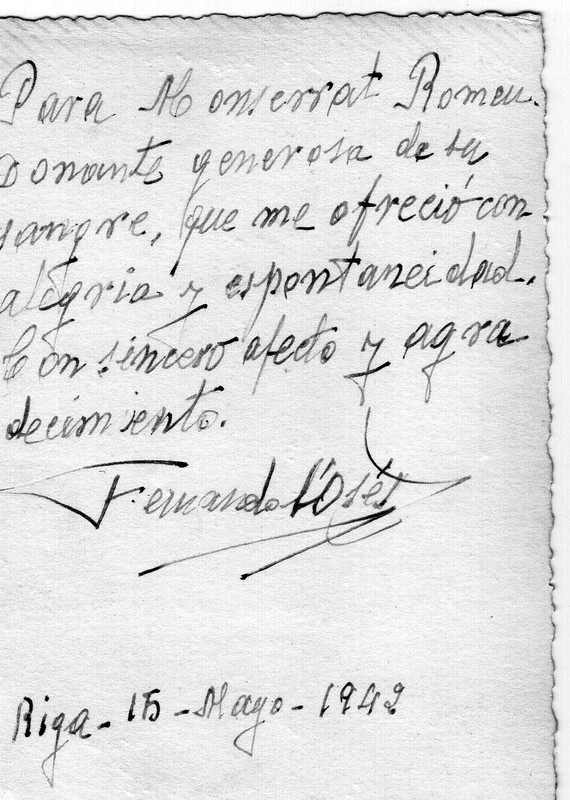 Para Monserrat Romeu.
Donante generosa de su
sangre, que me ofreció con
alegria y espontaneidad.
Con sincero afecto y agra
decimiento.
Fernando
Riga - 15 - Mayo - 1942